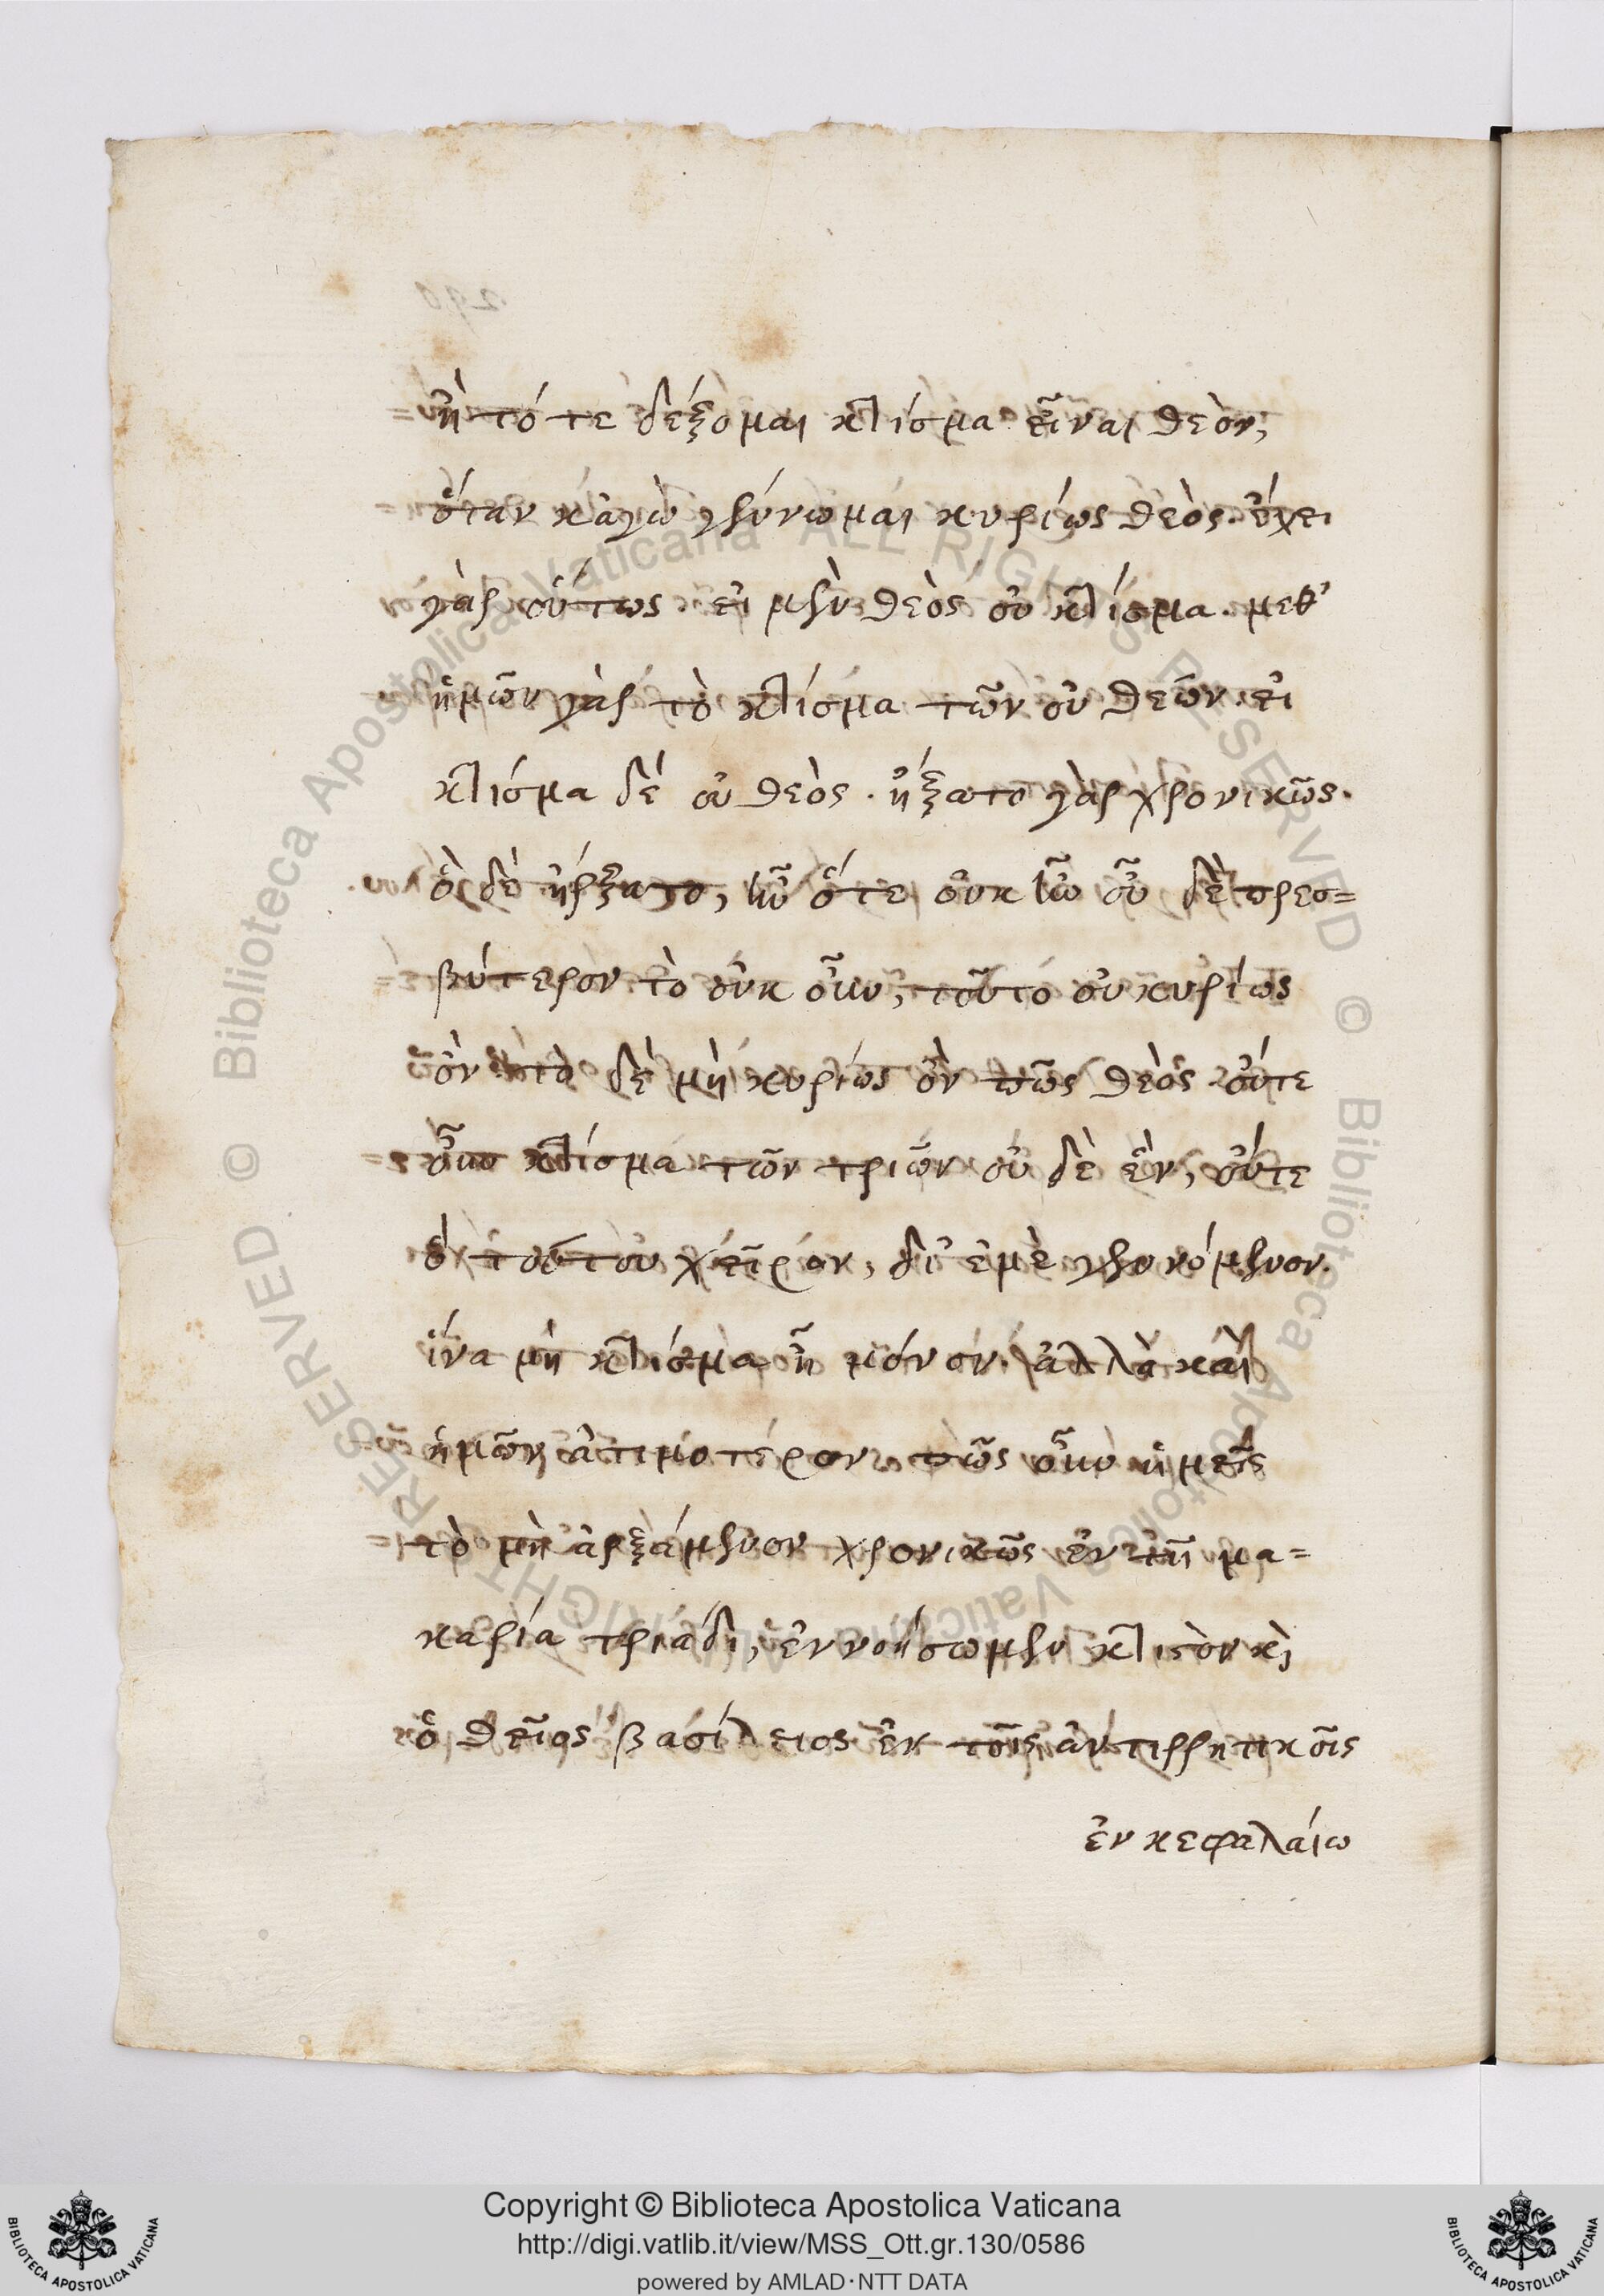 ἢ τότε δέξομαι κτίσμα εἶναι θεὸν,
ὅταν κἀγὼ γένωμαι κυρίως θεὸς. ἔχει
γὰρ οὕτως. εἰ μὲν θεὸς οὐ κτίσμα. μεθ'
ἡμῶν γὰρ τὸ κτίσμα τῶν οὐ θεῶν. εἰ
κτίσμα δέ οὐ θεὸς. ἤξατο γὰρ χρονικῶς.
ὃ δὲ ἤρξατο, ἦν ὅτε οὐκ ἦν οὗ δὲ πρεσ=
βύτερον τὸ οὐκ ἦν, τοῦτο οὐ κυρίως
ὂν τὸ δὲ μὴ κυρίως ὂν πῶς θεὸς οὔτε
οὖν κτίσμα τῶν τριῶν οὐ δὲ ἓν, οὔτε
ὃ τούτου χεῖρον, δι' ἐμὲ γενόμενον.
ἵνα μὴ κτίσμα ἦ μόνον. ἀλλὰ καὶ
ἡμῶν ἀτιμοτέρον πῶς οὖν ἡμεῖς
τὸ μὴ ἀρξάμενον χρονικῶς ἐν τῆ μα=
καρία τριάδι, ἐννοήσωμεν κτιστὸν κὶ
ὁ θεῖος βασίλειος ἐν τοῖς ἀντιρρητικοῖς
ἐν κεφαλαίω
290
Copyright © Biblioteca Apostolica Vaticana
http://digi.vatlib.it/view/MSS_Ott.gr.130/0586
powered by AMLAD·NTT DATA
BIBLIOTECA APOSTOLICA VATICANA
BIBLIOTECA APOSTOLICA VATICANA
© Biblioteca Apostolica Vaticana ALL RIGHTS RESERVED
© Biblioteca Apostolica Vaticana ALL RIGHTS RESERVED